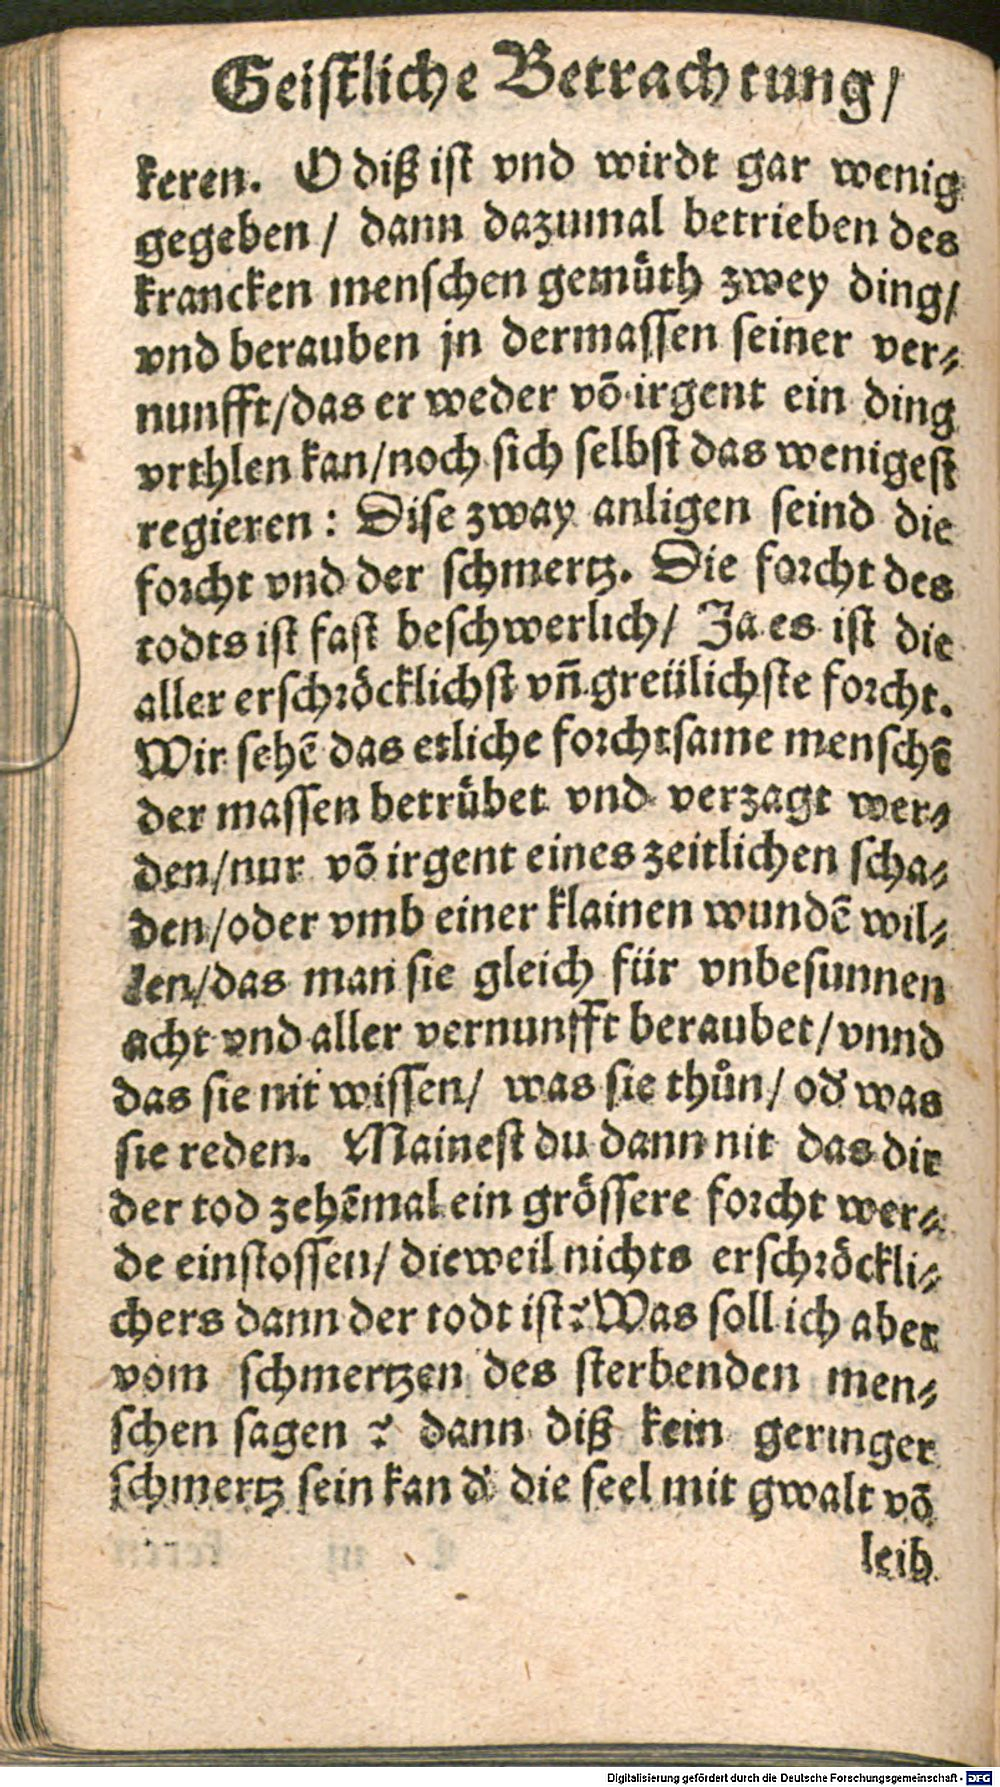 Geistliche Betrachtung/
keren. O diß ist vnd wirdt gar wenig
gegeben / dann dazumal betrieben des
krancken menschen gemüth zwey ding/
vnd berauben jn dermassen seiner ver-
nunfft/das er weder võ irgent ein ding
vrthlen kan/noch sich selbst das wenigest
regieren : Dise zway anligen seind die
forcht vnd der schmertz. Die forcht des
todts ist fast beschwerlich/ Ja es ist die
aller erschröcklichst vñ greülichste forcht.
Wir sehẽ das etliche forchtsame menschẽ
der massen betrübet vnd verzagt wer-
den/nur võ irgent eines zeitlichen scha-
den/oder vmb einer klainen wundẽ wil-
len/das man sie gleich für vnbesunnen
acht vnd aller vernunfft beraubet/vnnd
das sie nit wissen/ was sie thůn/ od̕ was
sie reden. Mainest du dann nit das dir
der tod zehẽmal ein grössere forcht wer-
de einstossen/ dieweil nichts erschröckli-
chers dann der todt ist? Was soll ich aber
vom schmertzen des sterbenden men-
schen sagen ? dann diß kein geringer
schmertz sein kan d̕ die seel mit gwalt võ
leib
Digitalisierung gefördert durch die Deutsche Forschungsgemeinschaft - DFG